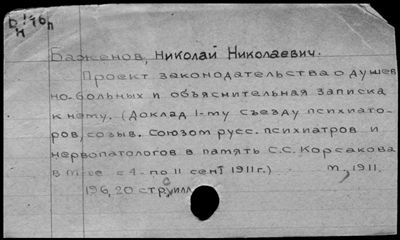 Баженов, Николай Николаевич.
Проект законодательства о душев
но-больных и объяснительная записка
к нему. (Доклад 1-му съезду психиато-
ров, созыв. Союзом русс. психиатров и
невропатологов в память С.С. Корсакова
в М-ве с 4- по 11 сент 1911 г.) М., 1911.
196, 20 стр. илл